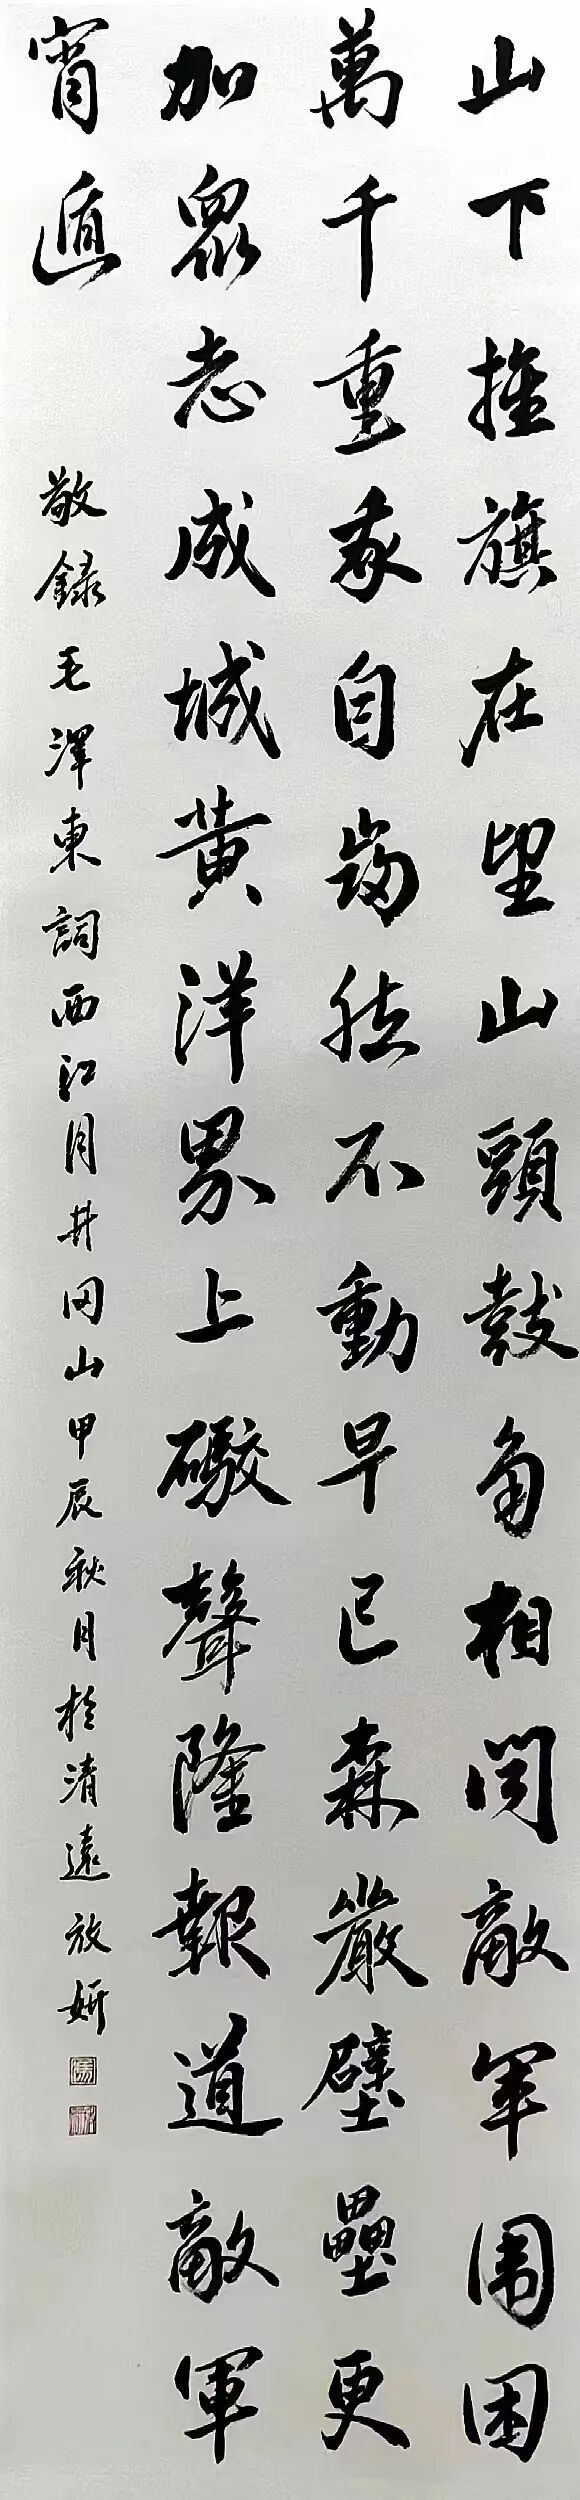 山下旌旗在望山頭鼓角相闻敵军围困
萬千重我自岿然不動早已森嚴壁壘更
加眾志成城黄洋界上礮聲隆報道敵軍
宵遁
敬録毛澤東詞西江月井冈山甲辰秋月於清遠放妍